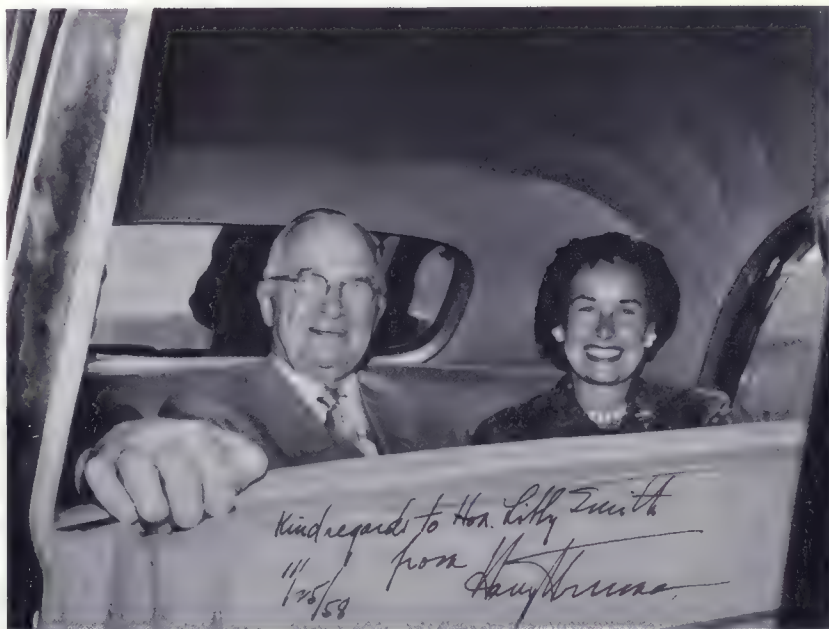 Kind regards to Hon. Libby Smith
from Harry Truman
11/25/58